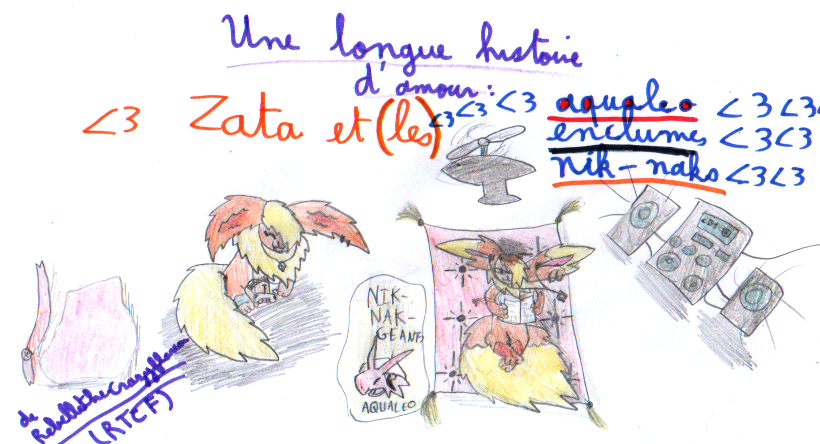 Une longue histoire
d'amour :
<3 Zata et (les) <3 <3 <3 aqualeo <3 <3
enclumes <3 <3
nik-naks <3 <3
NIK-
NAK-
GEANT
AQUALEO
de
(RTCF)